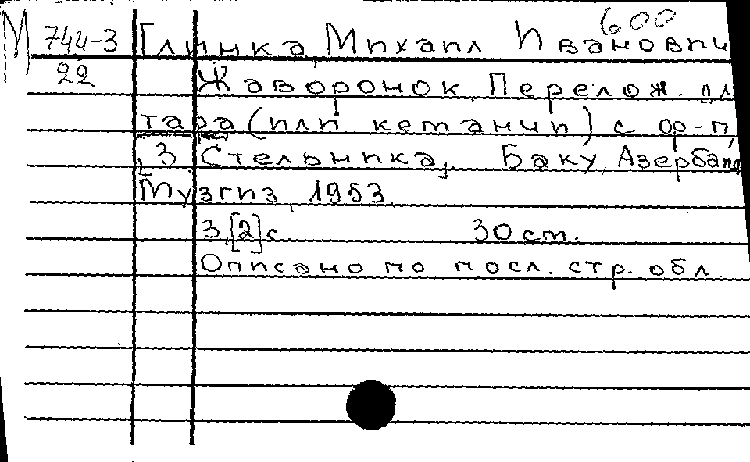 600
М 744-3 Глинка, Михаил Иванови
22 Жаворонок. Перелож. дл
тара (или кеманчи) с ф-п,
З. Стельника, Баку, Азерба
Музгиз, 1953.
3,[2] с. 30 cm.
Описано по посл. стр. обл.